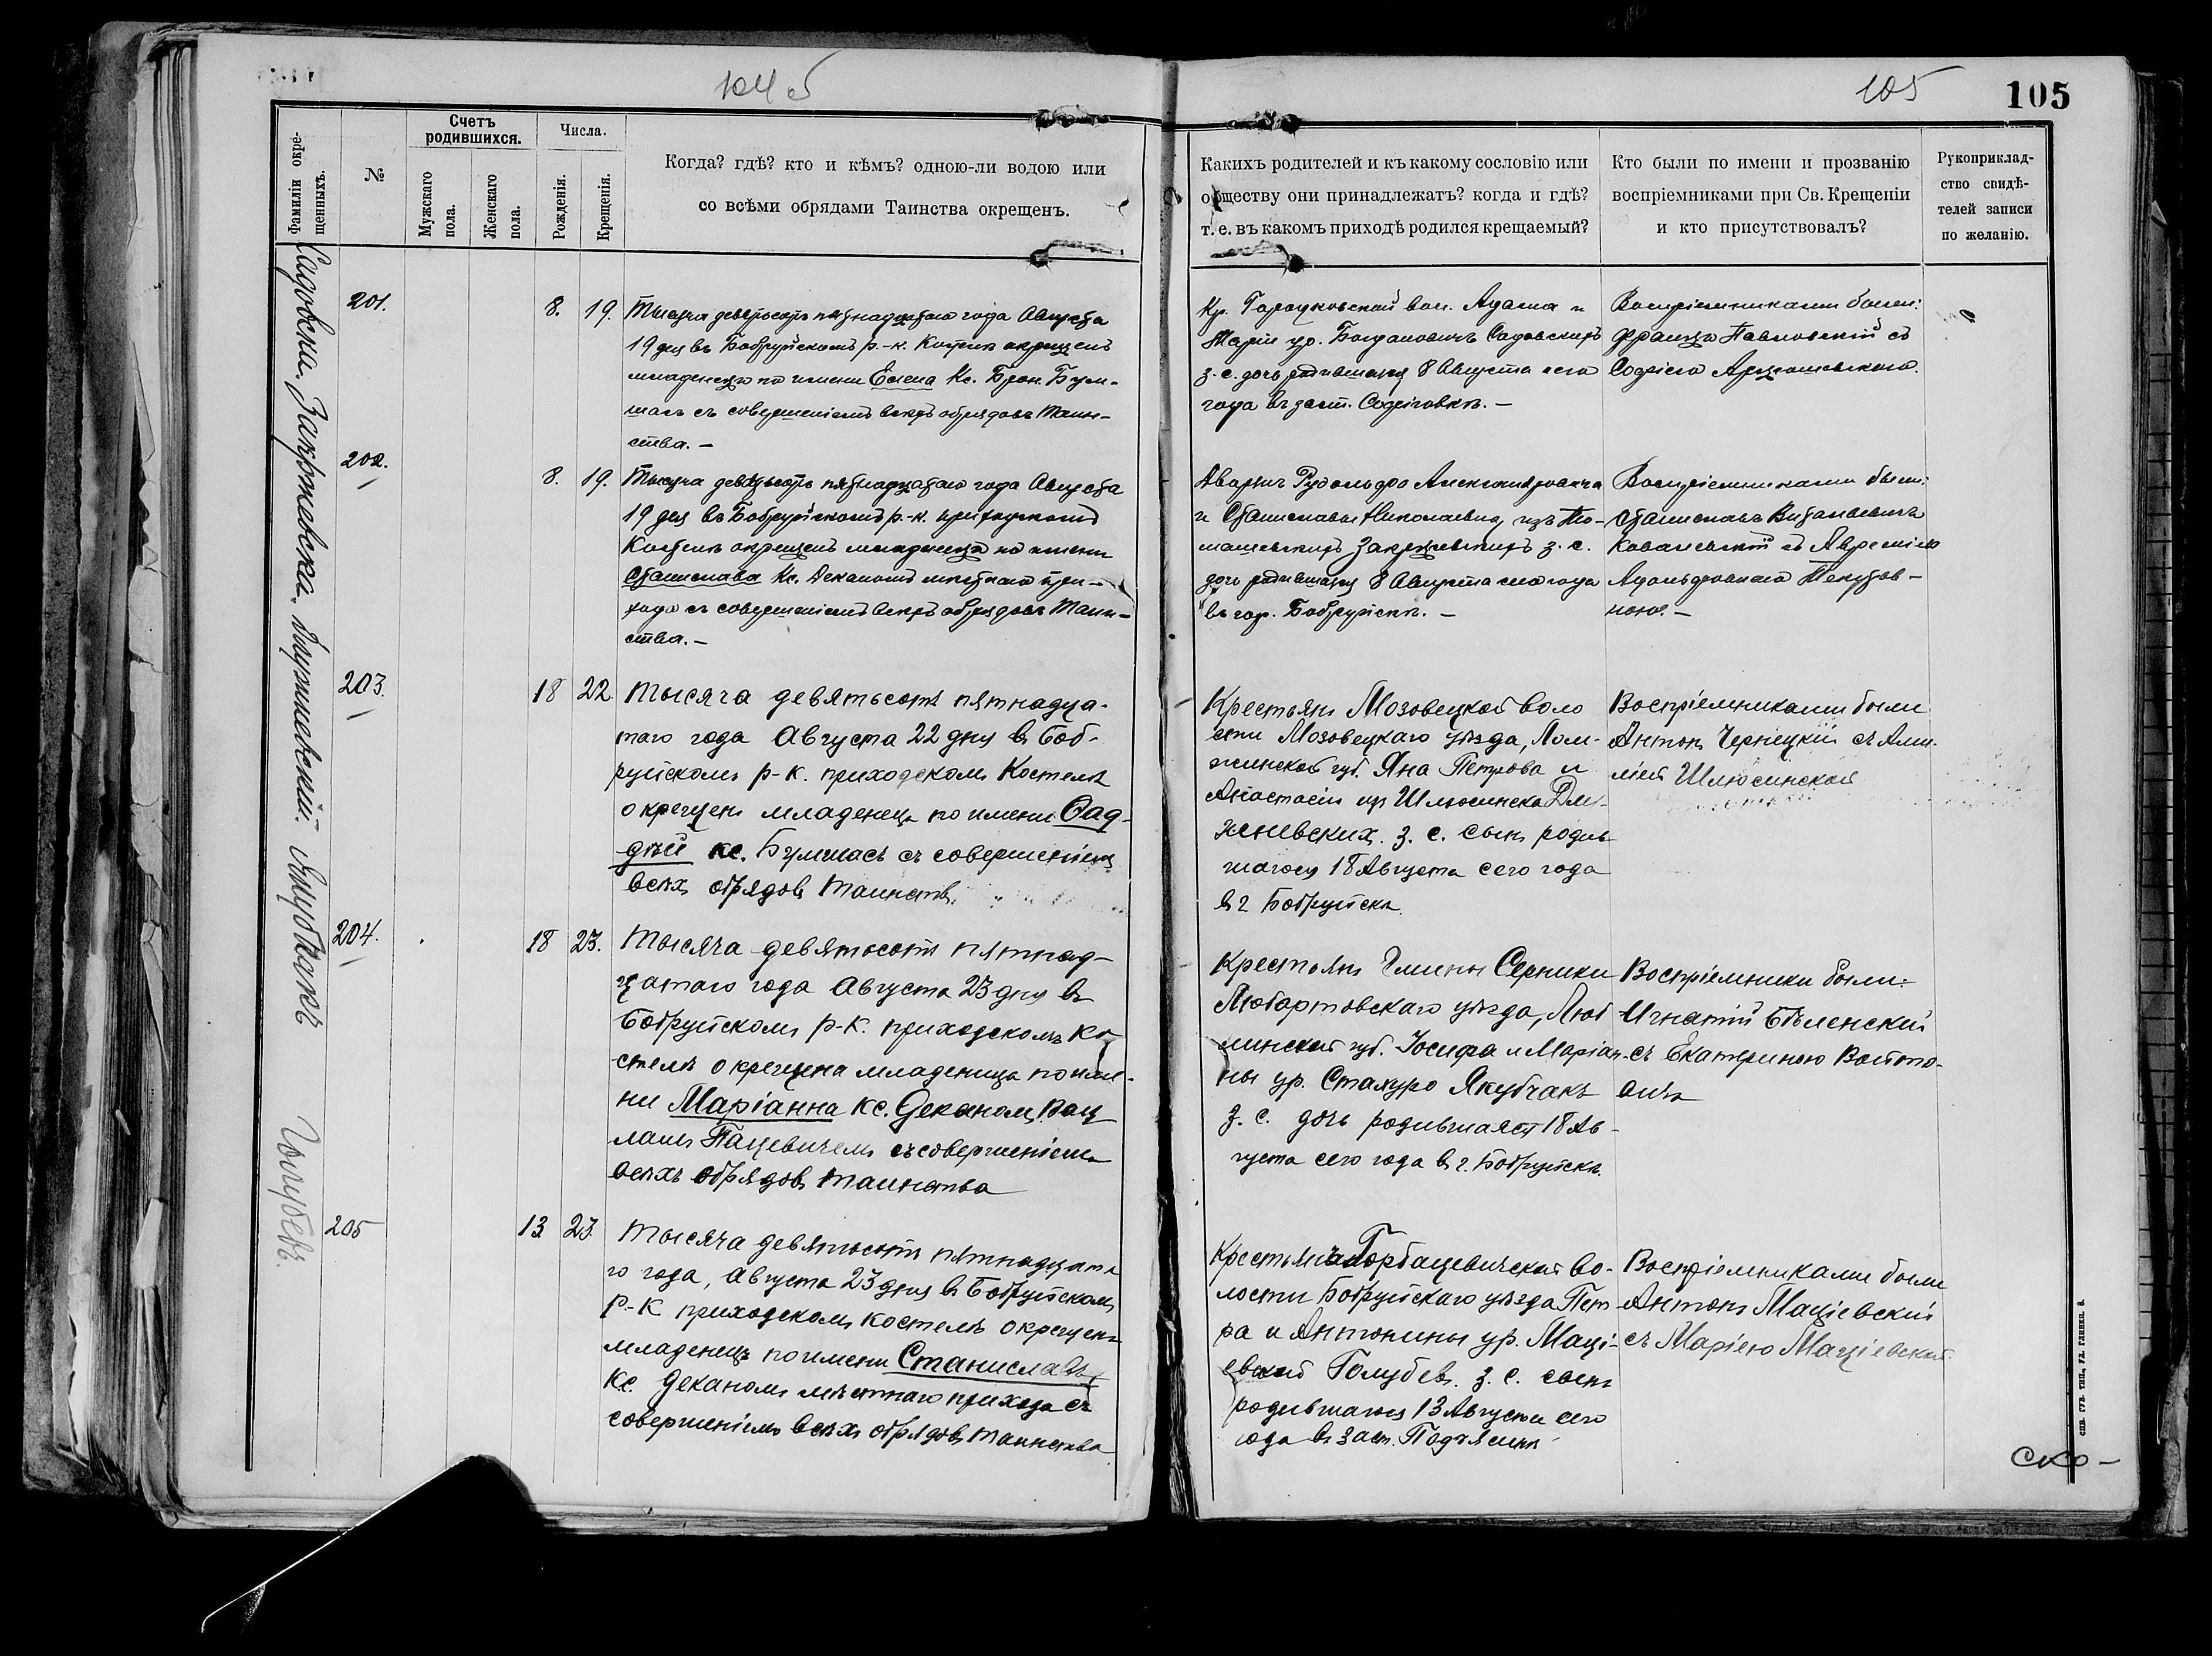 104 об
105
105
Фамиліи окрещенныхъ.
№
Счетъ родившихся.
Мужскаго пола.
Женскаго пола.
Числа.
Рожденія.
Крещенія.
Когда? гдѣ? кто и кѣмъ? одною-ли водою или
со всѣми обрядами Таинства окрещенъ.
Какихъ родителей и къ какому сословію или
обществу они принадлежатъ? когда и гдѣ?
т. е. въ какомъ приходѣ родился крещаемый?
Кто были по имени и прозванію
воспріемниками при Св. Крещеніи
и кто присутствовалъ?
Рукоприклад-
ство свидѣ-
телей записи
по желанію.
Садовска.
201.
8. 19.
Тысяча девятьсотъ пятнадцатаго года Августа
19 дня въ Бобруйскомъ р.-к. Костелѣ окрещенъ
младенецъ по имени Елена Кс. Брон. Бум-
шасъ съ совершеніемъ всѣхъ обрядовъ Таин-
ства. –
Кр. Городковской вол. Адама и
Маріи ур. Богдановичъ Садовскихъ
з. с. дочь родившаяся 8 Августа сего
года въ заст. Софіговкѣ. –
Воспріемниками были:
Францъ Павловскій съ
Софіею
Закржевска.
202.
8. 19.
Тысяча девятьсотъ пятнадцатаго года Августа
19 дня въ Бобруйскомъ р.-к. приходскомъ
Костелѣ окрещенъ младенецъ по имени
Станислава Кс. Деканомъ мѣстнаго при-
хода съ совершеніемъ всѣхъ обрядовъ Таин-
ства. –
Дворянъ Рудольфа Александровича
и Станиславы Николаевны, изъ То-
машевскихъ Закржевскихъ з. с.
дочь родившаяся 8 Августа сего года
въ гор. Бобруйскѣ. –
Воспріемниками были:
Станиславъ Витальевичъ
Ковалевскій съ
Адольфовною
ною. –
203.
18 22.
Тысяча девятьсотъ пятнадца-
таго года Августа 22 дня въ Боб-
руйскомъ р-к. приходскомъ Костелѣ
окрещенъ младенецъ по имени Фад-
дѣй кс. Бумшасъ съ совершеніемъ
всѣхъ обрядовъ Таинствъ.
Крестьянъ Мозовецкой воло
сти Мозовецкаго уѣзда, Лом-
жинской губ. Яна Петрова и
Анастасіи ур Шлюсинска Длу-
жневскихъ. з. с. сынъ родив
шагося 18 Августа сего года
въ г Бобруйскѣ.
Воспріемниками были
Антонъ Чернецкій съ Ами-
ліей Шлюсинской
Якубчакъ
204.
18 23.
Тысяча девятьсотъ пятнад-
цатаго года Августа 23 дня въ
Бобруйскомъ р-к. приходскомъ Ко
стелѣ окрещена младенецъ по име-
ни Маріанна кс. Деканомъ Вац
лавъ Пацевичемъ съ совершеніемъ
всѣхъ обрядовъ таинства
Крестьянъ Гмины Серники
Любартовскаго уѣзда, Люб
линской губ. Іосифа и Маріан-
ны ур. Стахуро Якубчакъ
з. с. дочь родившаяся 18 Ав-
густа сего года въ г. Бобруйскѣ.
Воспріемники были:
Игнатій Бѣленскій
съ Екатериною Войто-
вичъ
Голубевъ.
205
13 23.
Тысяча девятьсотъ пятнадцата
го года, Августа 23 дня въ Бобруйскомъ
р-к приходскомъ костелѣ окрещенъ
младенецъ по имени Станиславъ
кс. Деканомъ мѣстнаго прихода съ
совершеніемъ всѣхъ обрядовъ таинства
Крестьянъ Горбацевичской во-
лости Бобруйскаго уѣзда Пет
ра и Антонины ур. Маці-
евской Голубевъ. з. с. сынъ
родившагося 13 Августа сего
года въ заст.
Воспріемниками были
Антонъ Маціевскій
съ Маріею Маціевской
СПБ. ГУБ. ТИП., УЛ. ГЛИНКИ, 8.